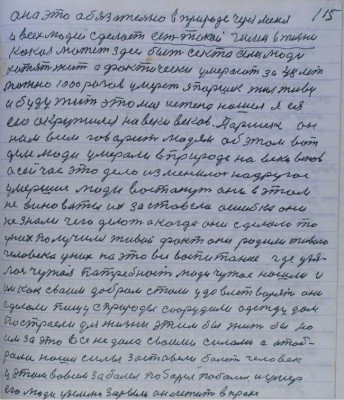 она это обязательно в природе через меня 115
и всех людей сделает
какая может здесь быть секта если люди
хотят жить а фактически умирают за
только 1000 разов умереть я Паршек жил живу
и буду жить это моя истина нашел я ея
его окружил на веки веков. Паршек он
нам всем говорит людям об этом вот
чем люди умерали в природе на веки веков
а сейчас это дело изменилось на другое
умерши люди востанут они в этом
не виноваты их заставила ошибка они
не знали чего делать а когда они сделали то
у них получили живой факт они родили живого
человека у них на это все воспитание где взя-
лося чужая потребность люди чужое нашли и
им как своим добром стали удовлетворять они
сделали пищу с природы соорудили одежду дом
построили для жизни этим бы жить бы но
им за это все не дала своими силами а
дала наоши силы заставила болеть человек
у этом во всем заболел поболел поболел и умер
его люди у землю зарыли он лежит в прахе